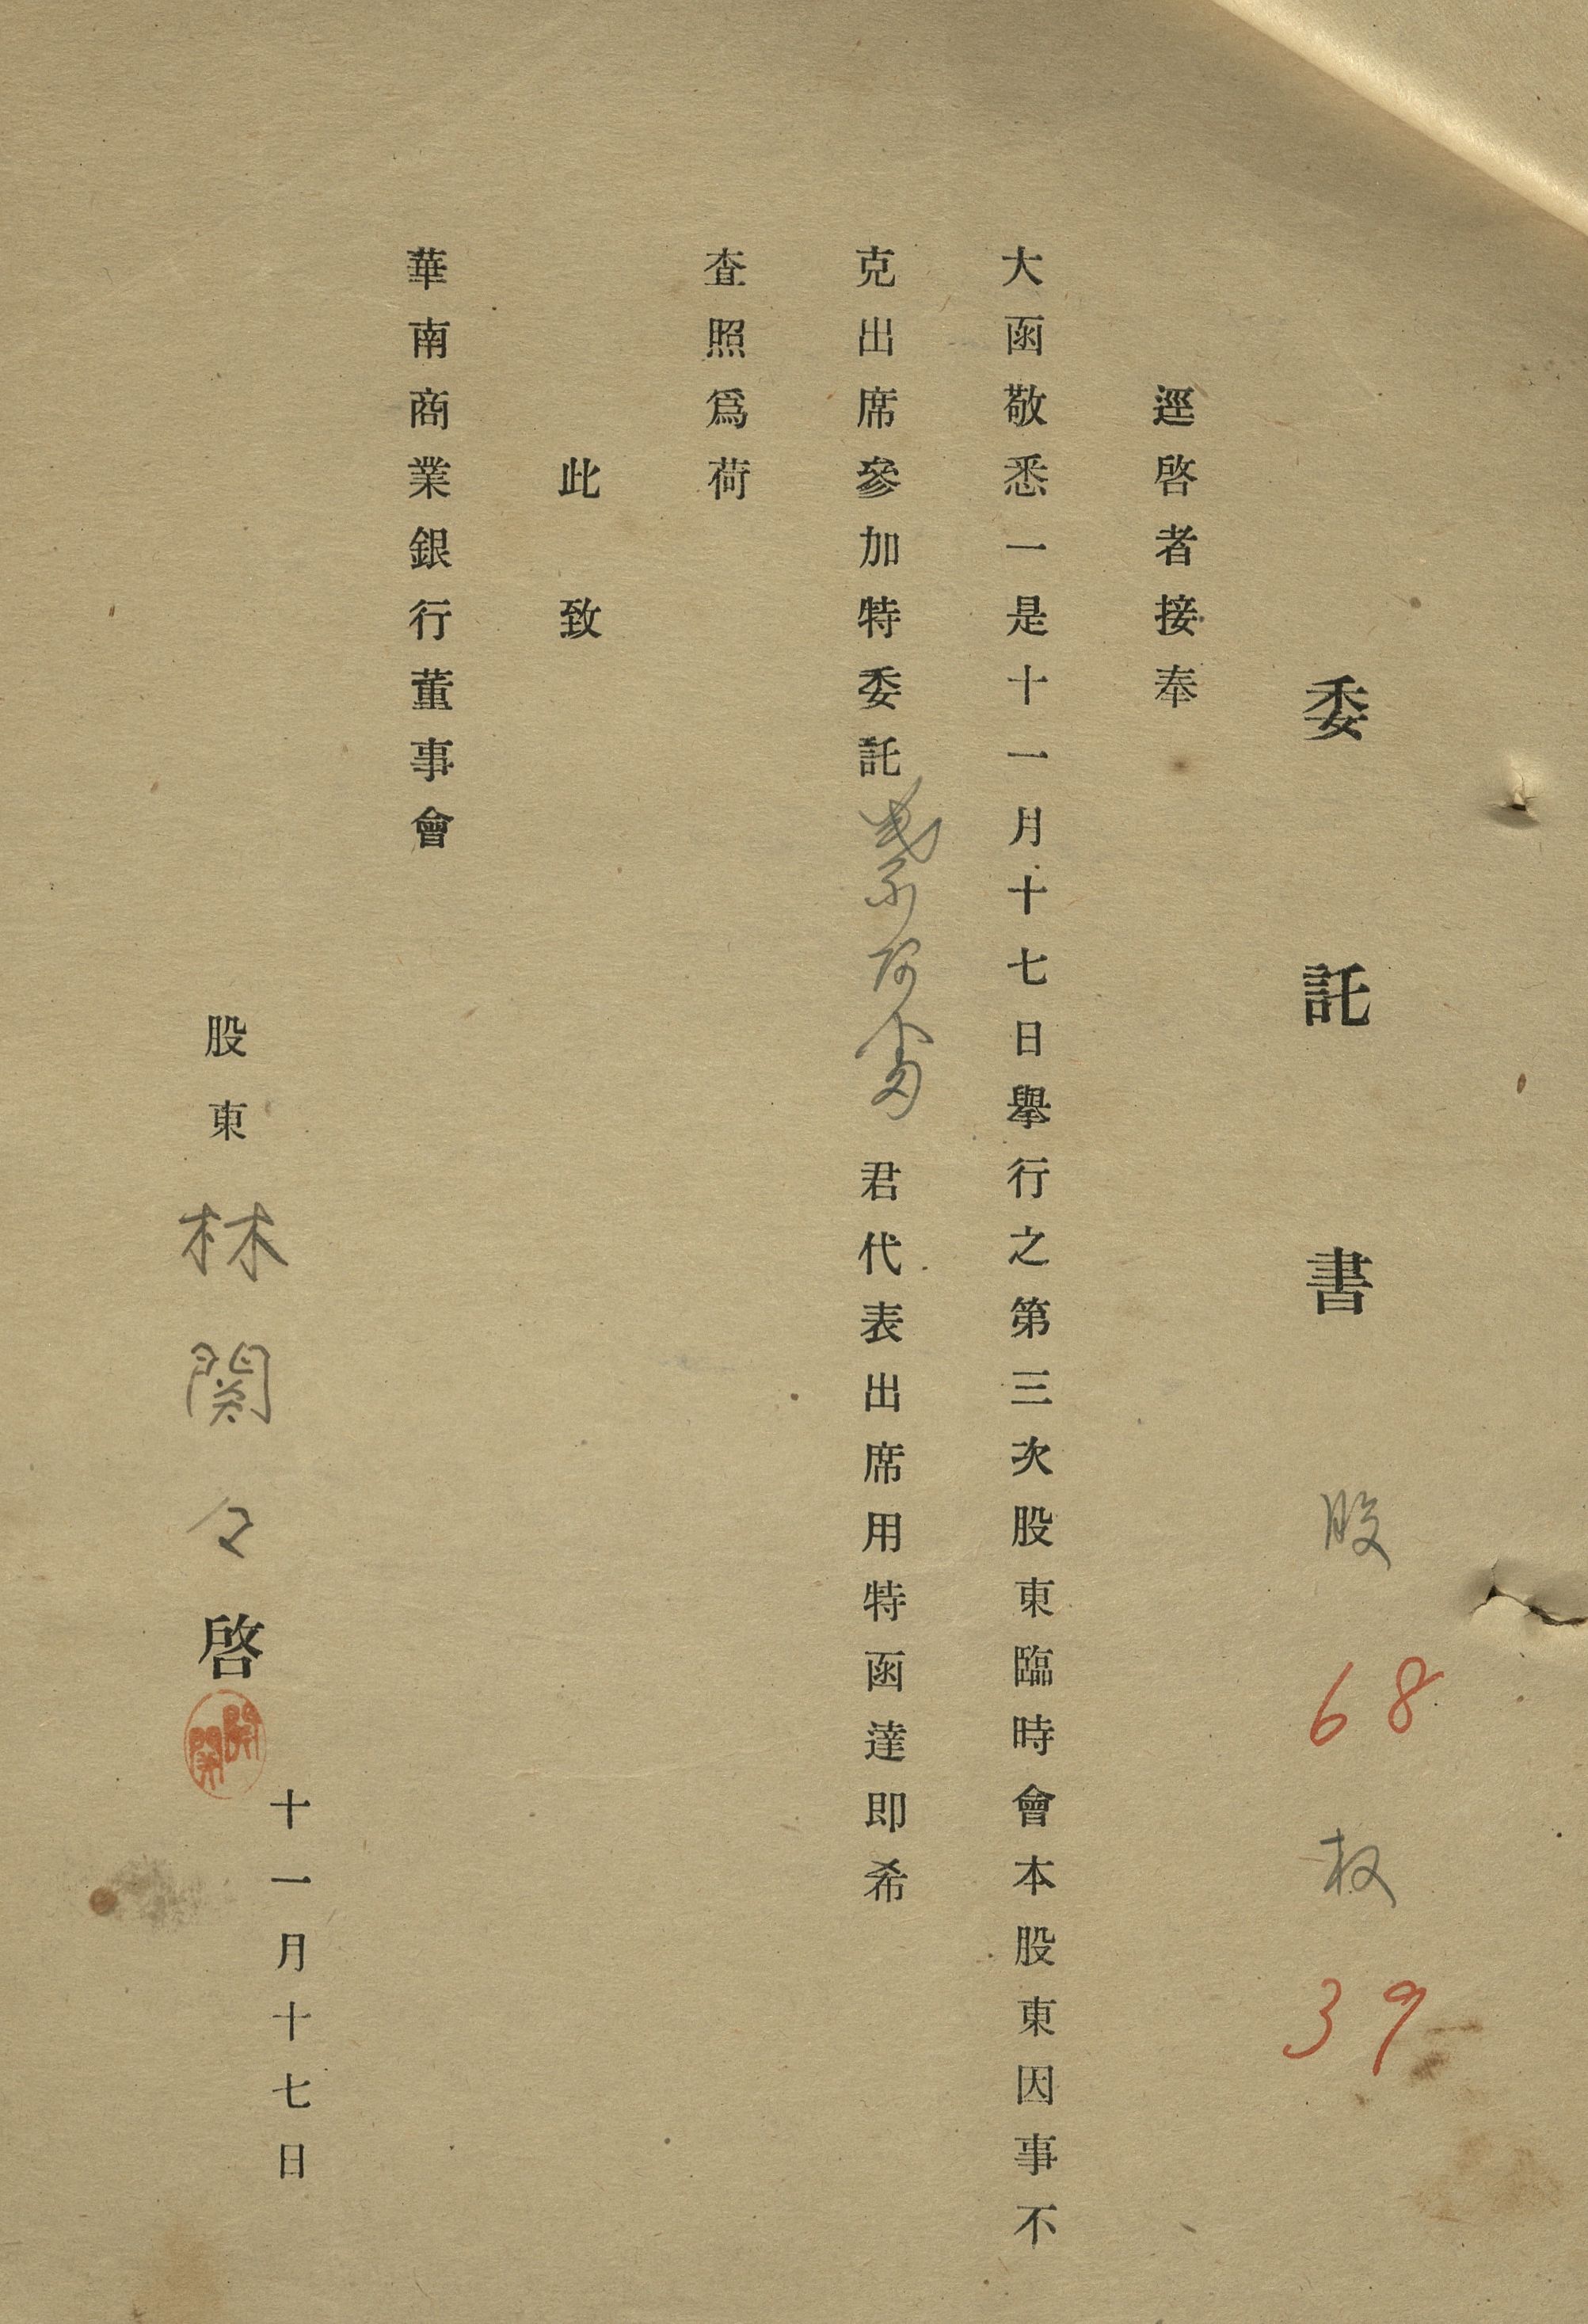 委託書 股 68 权 39
逕啓者接奉
大函敬悉一是十一月十七日舉行之第三次股東臨時會本股東因事不
克出席參加特委託 君代表出席用特函達即希
查照爲荷
此致
華南商業銀行董事會
十一月十七日
股東 林関々 啓
関関